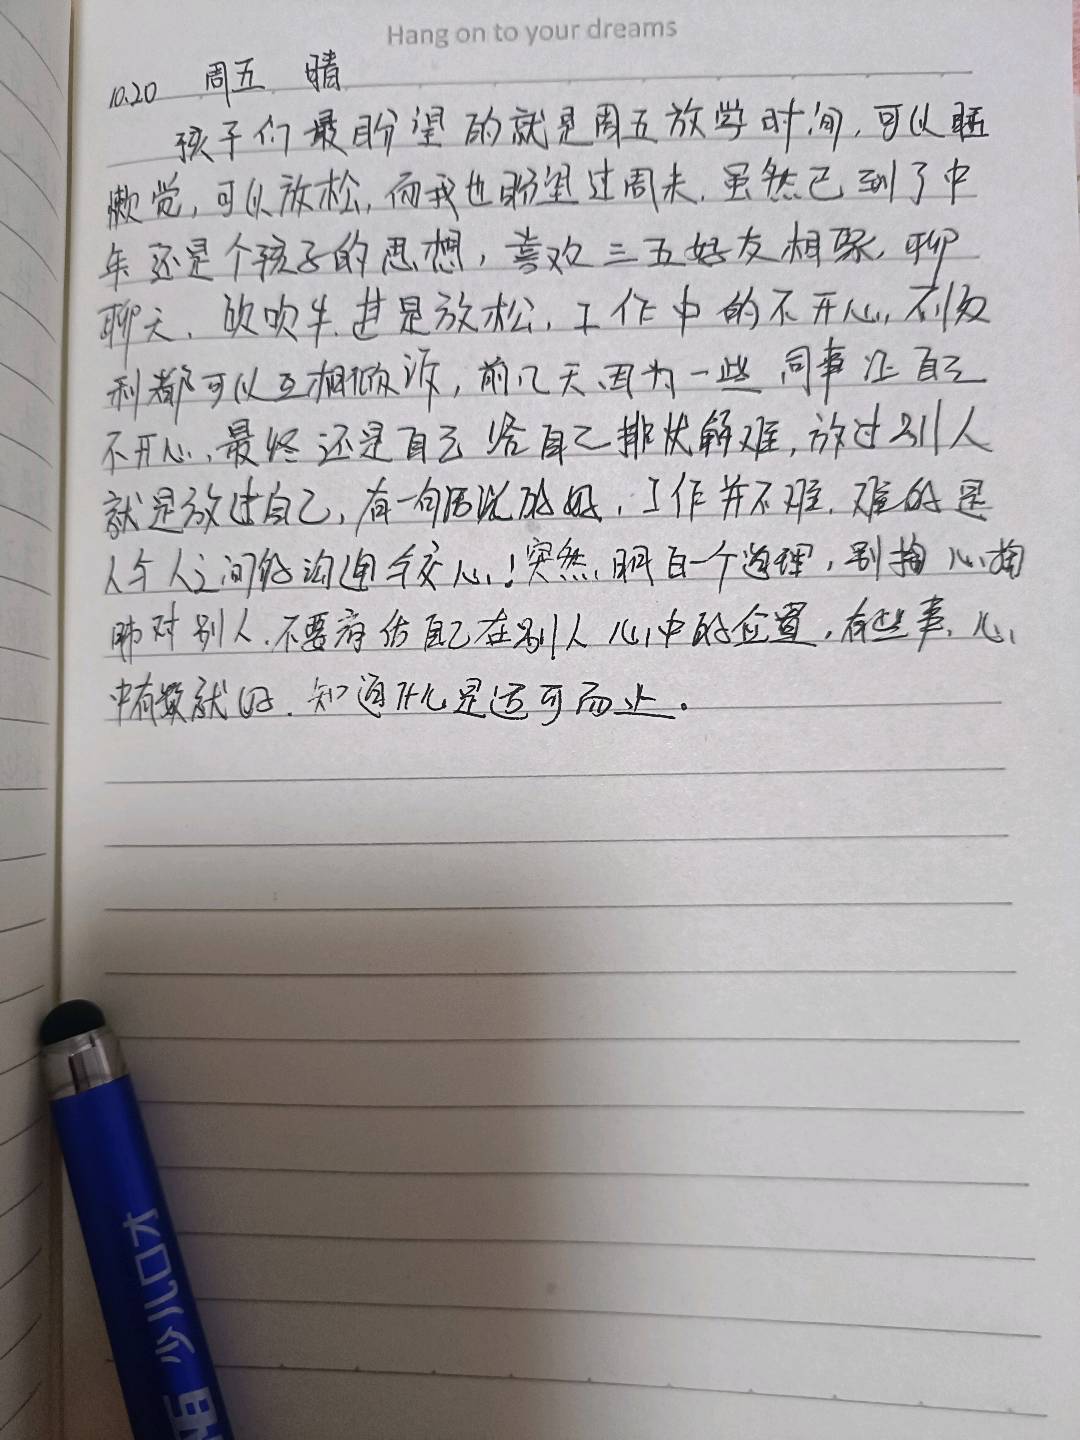 Hang on to your dreams
10.20 周五 晴
孩子们最盼望的就是周五放学时间,可以睡
懒觉,可以放松,而我也盼望过周末.虽然已到了中
年还是个孩子的思想,喜欢三五好友相聚,聊
聊天.吹吹牛.甚是放松,工作中的不开心,不顺
利都可以互相倾诉,前几天因为一些同事让自己
不开心,最终还是自己给自己排忧解难,放过别人
就是放过自己,有一句话说的好,工作并不难.难的是
人与人之间的沟通与交心!突然明白一个道理,别掏心掏
肺对别人.不要高估自己在别人心中的位置,有些事,心
中有数就好.知道什么是适可而止.
少儿口才